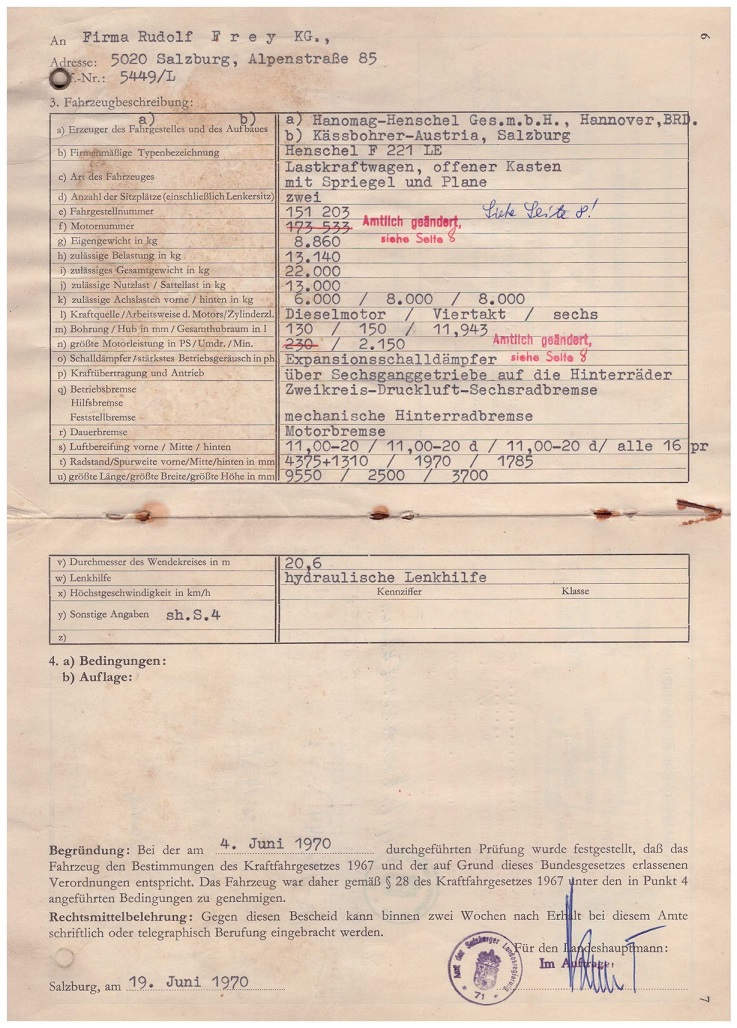 6
An Firma Rudolf F r e y KG.,
Adresse: 5020 Salzburg, Alpenstraße 85
f.-Nr.: 5449/L
3. Fahrzeugbeschreibung:
a) b)
a) Erzeuger des Fahrgestelles und des Aufbaues a) Hanomag-Henschel Ges.m.b.H., Hannover,BRD.
b) Kässbohrer-Austria, Salzburg
b) Firmenmäßige Typenbezeichnung Henschel F 221 LE
c) Art des Fahrzeuges Lastkraftwagen, offener Kasten
mit Spriegel und Plane
d) Anzahl der Sitzplätze (einschließlich Lenkersitz) zwei
e) Fahrgestellnummer 151 203 Siehe Seite 8!
f) Motornummer 173 533 Amtlich geändert,
siehe Seite 8
g) Eigengewicht in kg 8.860
h) zulässige Belastung in kg 13.140
i) zulässiges Gesamtgewicht in kg 22.000
j) zulässige Nutzlast / Sattellast in kg 13.000
k) zulässige Achslasten vorne / hinten in kg 6.000 / 8.000 / 8.000
l) Kraftquelle/Arbeitsweise d. Motors/Zylinderzl. Dieselmotor / Viertakt / sechs
m) Bohrung / Hub in mm / Gesamthubraum in l 130 / 150 / 11,943
n) größte Motorleistung in PS / Umdr. / Min. 230 / 2.150 Amtlich geändert,
siehe Seite 8
o) Schalldämpfer/stärkstes Betriebsgeräusch in ph Expansionsschalldämpfer
p) Kraftübertragung und Antrieb über Sechsganggetriebe auf die Hinterräder
q) Betriebsbremse Zweikreis-Druckluft-Sechsradbremse
Hilfsbremse
Feststellbremse mechanische Hinterradbremse
r) Dauerbremse Motorbremse
s) Luftbereifung vorne / Mitte / hinten 11,00-20 / 11,00-20 d / 11,00-20 d/ alle 16 pr
t) Radstand/Spurweite vorne/Mitte/hinten in mm 4375+1310 / 1970 / 1785
u) größte Länge/größte Breite/größte Höhe in mm 9550 / 2500 / 3700
v) Durchmesser des Wendekreises in m 20,6
w) Lenkhilfe hydraulische Lenkhilfe
x) Höchstgeschwindigkeit in km/h Kennziffer Klasse
y) Sonstige Angaben sh.S.4
z)
4. a) Bedingungen:
b) Auflage:
Begründung: Bei der am 4. Juni 1970 durchgeführten Prüfung wurde festgestellt, daß das
Fahrzeug den Bestimmungen des Kraftfahrgesetzes 1967 und der auf Grund dieses Bundesgesetzes erlassenen
Verordnungen entspricht. Das Fahrzeug war daher gemäß § 28 des Kraftfahrgesetzes 1967 unter den in Punkt 4
angeführten Bedingungen zu genehmigen.
Rechtsmittelbelehrung: Gegen diesen Bescheid kann binnen zwei Wochen nach Erhalt bei diesem Amte
schriftlich oder telegraphisch Berufung eingebracht werden.
Für den Landeshauptmann:
Im Auftrage:
Amt der Salzburger Landesregierung
* 71 *
Salzburg, am 19. Juni 1970
7